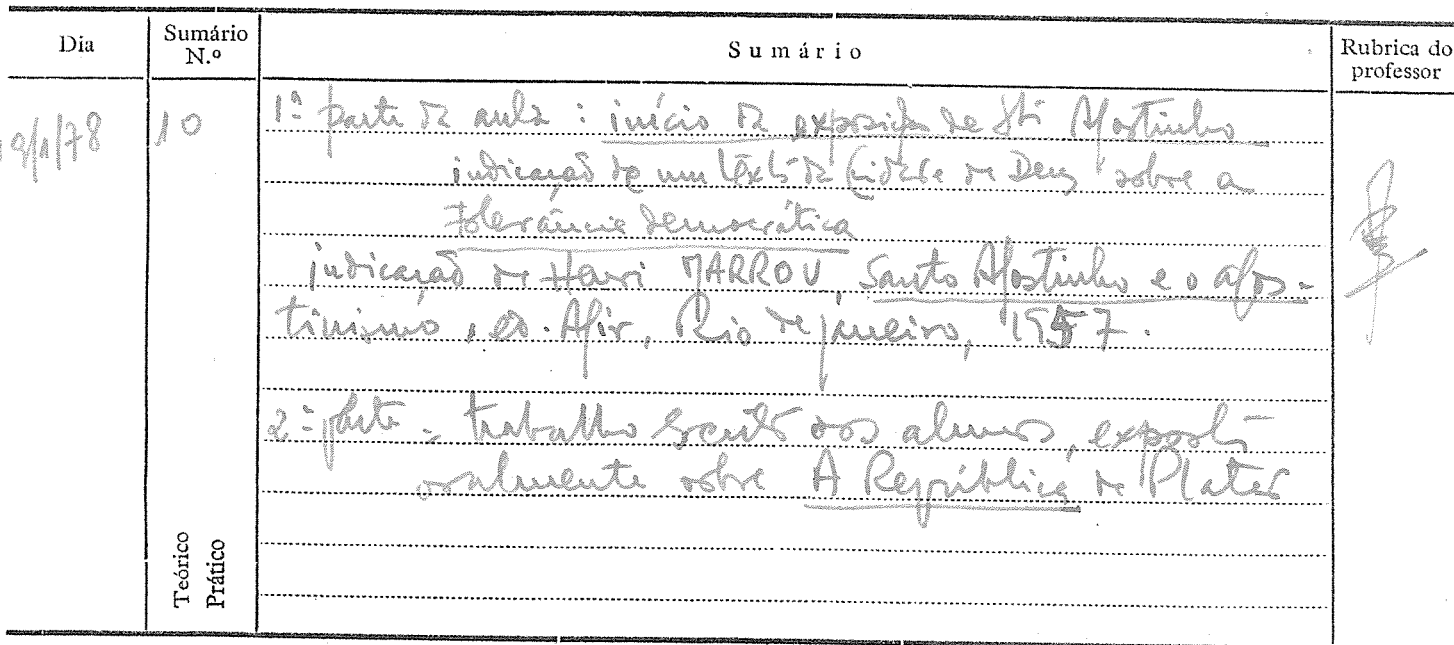 Dia
Sumário N.º
Sumário
Rubrica do professor
19/1/78
10
1ª parte da aula : início da exposição de Stº Agostinho
indicação de um texto da Cidade de Deus sobre a
tolerância democrática
indicação de Henri MARROU, Santo Agostinho e o agos-
tinismo, ed. Agir, Rio de janeiro, 1957.
2ª parte - trabalho escrito dos alunos, exposto
oralmente sobre A República de Platão
Teórico
Prático